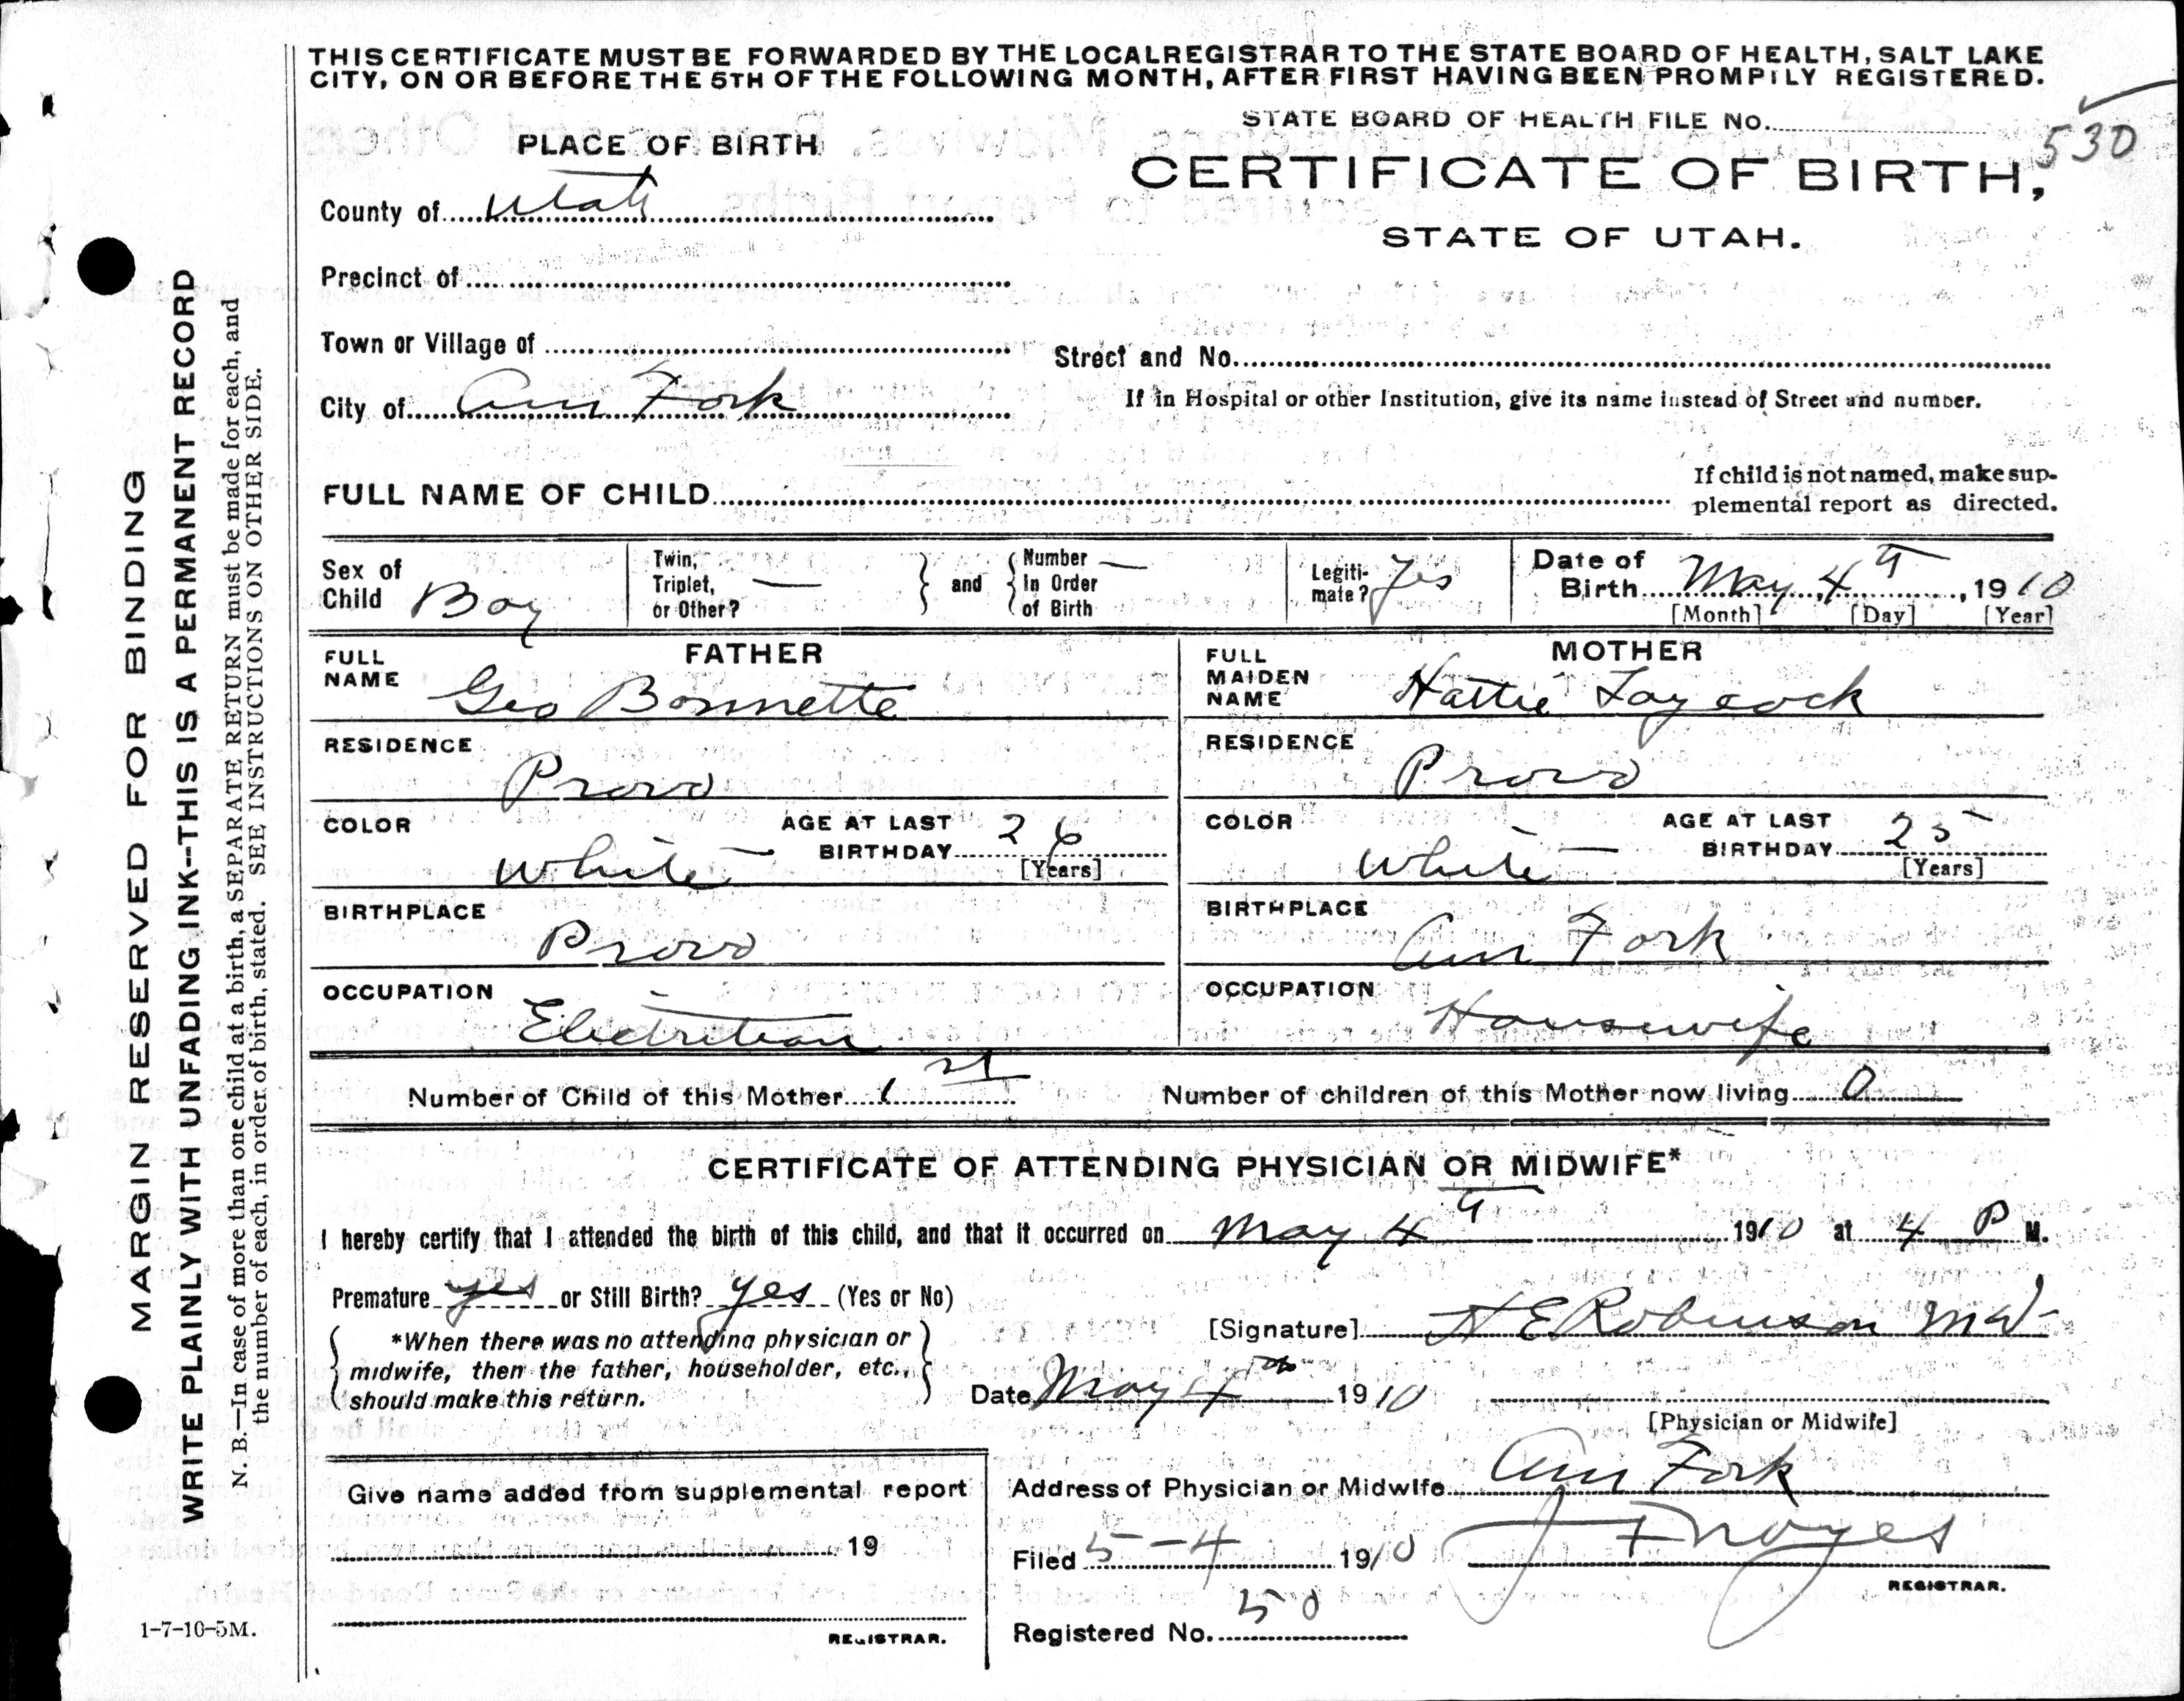 THIS CERTIFICATE MUST BE FORWARDED BY THE LOCAL REGISTRAR TO THE STATE BOARD OF HEALTH, SALT LAKE
CITY, ON OR BEFORE THE 5TH OF THE FOLLOWING MONTH, AFTER FIRST HAVING BEEN PROMPTLY REGISTERED.
STATE BOARD OF HEALTH FILE No.
530
PLACE OF BIRTH
CERTIFICATE OF BIRTH,
STATE OF UTAH.
County of Utah
Precinct of
Town or Village of
Street and No.
City of Am Fork
If in Hospital or other Institution, give its name instead of Street and number.
FULL NAME OF CHILD
If child is not named, make sup-
plemental report as directed.
Sex of Child Boy
Twin, Triplet, or Other? —
and
Number In Order of Birth —
Legiti- mate? Yes
Date of Birth May 4th, 1910
[Month] [Day] [Year]
FATHER
FULL NAME Geo Bonnette
RESIDENCE Provo
COLOR White AGE AT LAST BIRTHDAY 26 [Years]
BIRTHPLACE Provo
OCCUPATION Electritian
MOTHER
FULL MAIDEN NAME Hattie Laycock
RESIDENCE Provo
COLOR White AGE AT LAST BIRTHDAY 25 [Years]
BIRTHPLACE Am Fork
OCCUPATION Housewife
Number of Child of this Mother 1st Number of children of this Mother now living 0
CERTIFICATE OF ATTENDING PHYSICIAN OR MIDWIFE*
I hereby certify that I attended the birth of this child, and that it occurred on May 4th 1910 at 4 P M.
Premature yes or Still Birth? yes (Yes or No)
*When there was no attending physician or
midwife, then the father, householder, etc.,
should make this return.
[Signature] H E Robinson MD
Date May 4th 1910
[Physician or Midwife]
Give name added from supplemental report
19
REGISTRAR.
Address of Physician or Midwife Am Fork
Filed 5-4 1910 J F Noyes
REGISTRAR.
Registered No. 50
1-7-10-5M.
MARGIN RESERVED FOR BINDING
WRITE PLAINLY WITH UNFADING INK--THIS IS A PERMANENT RECORD
N. B.—In case of more than one child at a birth, a SEPARATE RETURN must be made for each, and
the number of each, in order of birth, stated. SEE INSTRUCTIONS ON OTHER SIDE.